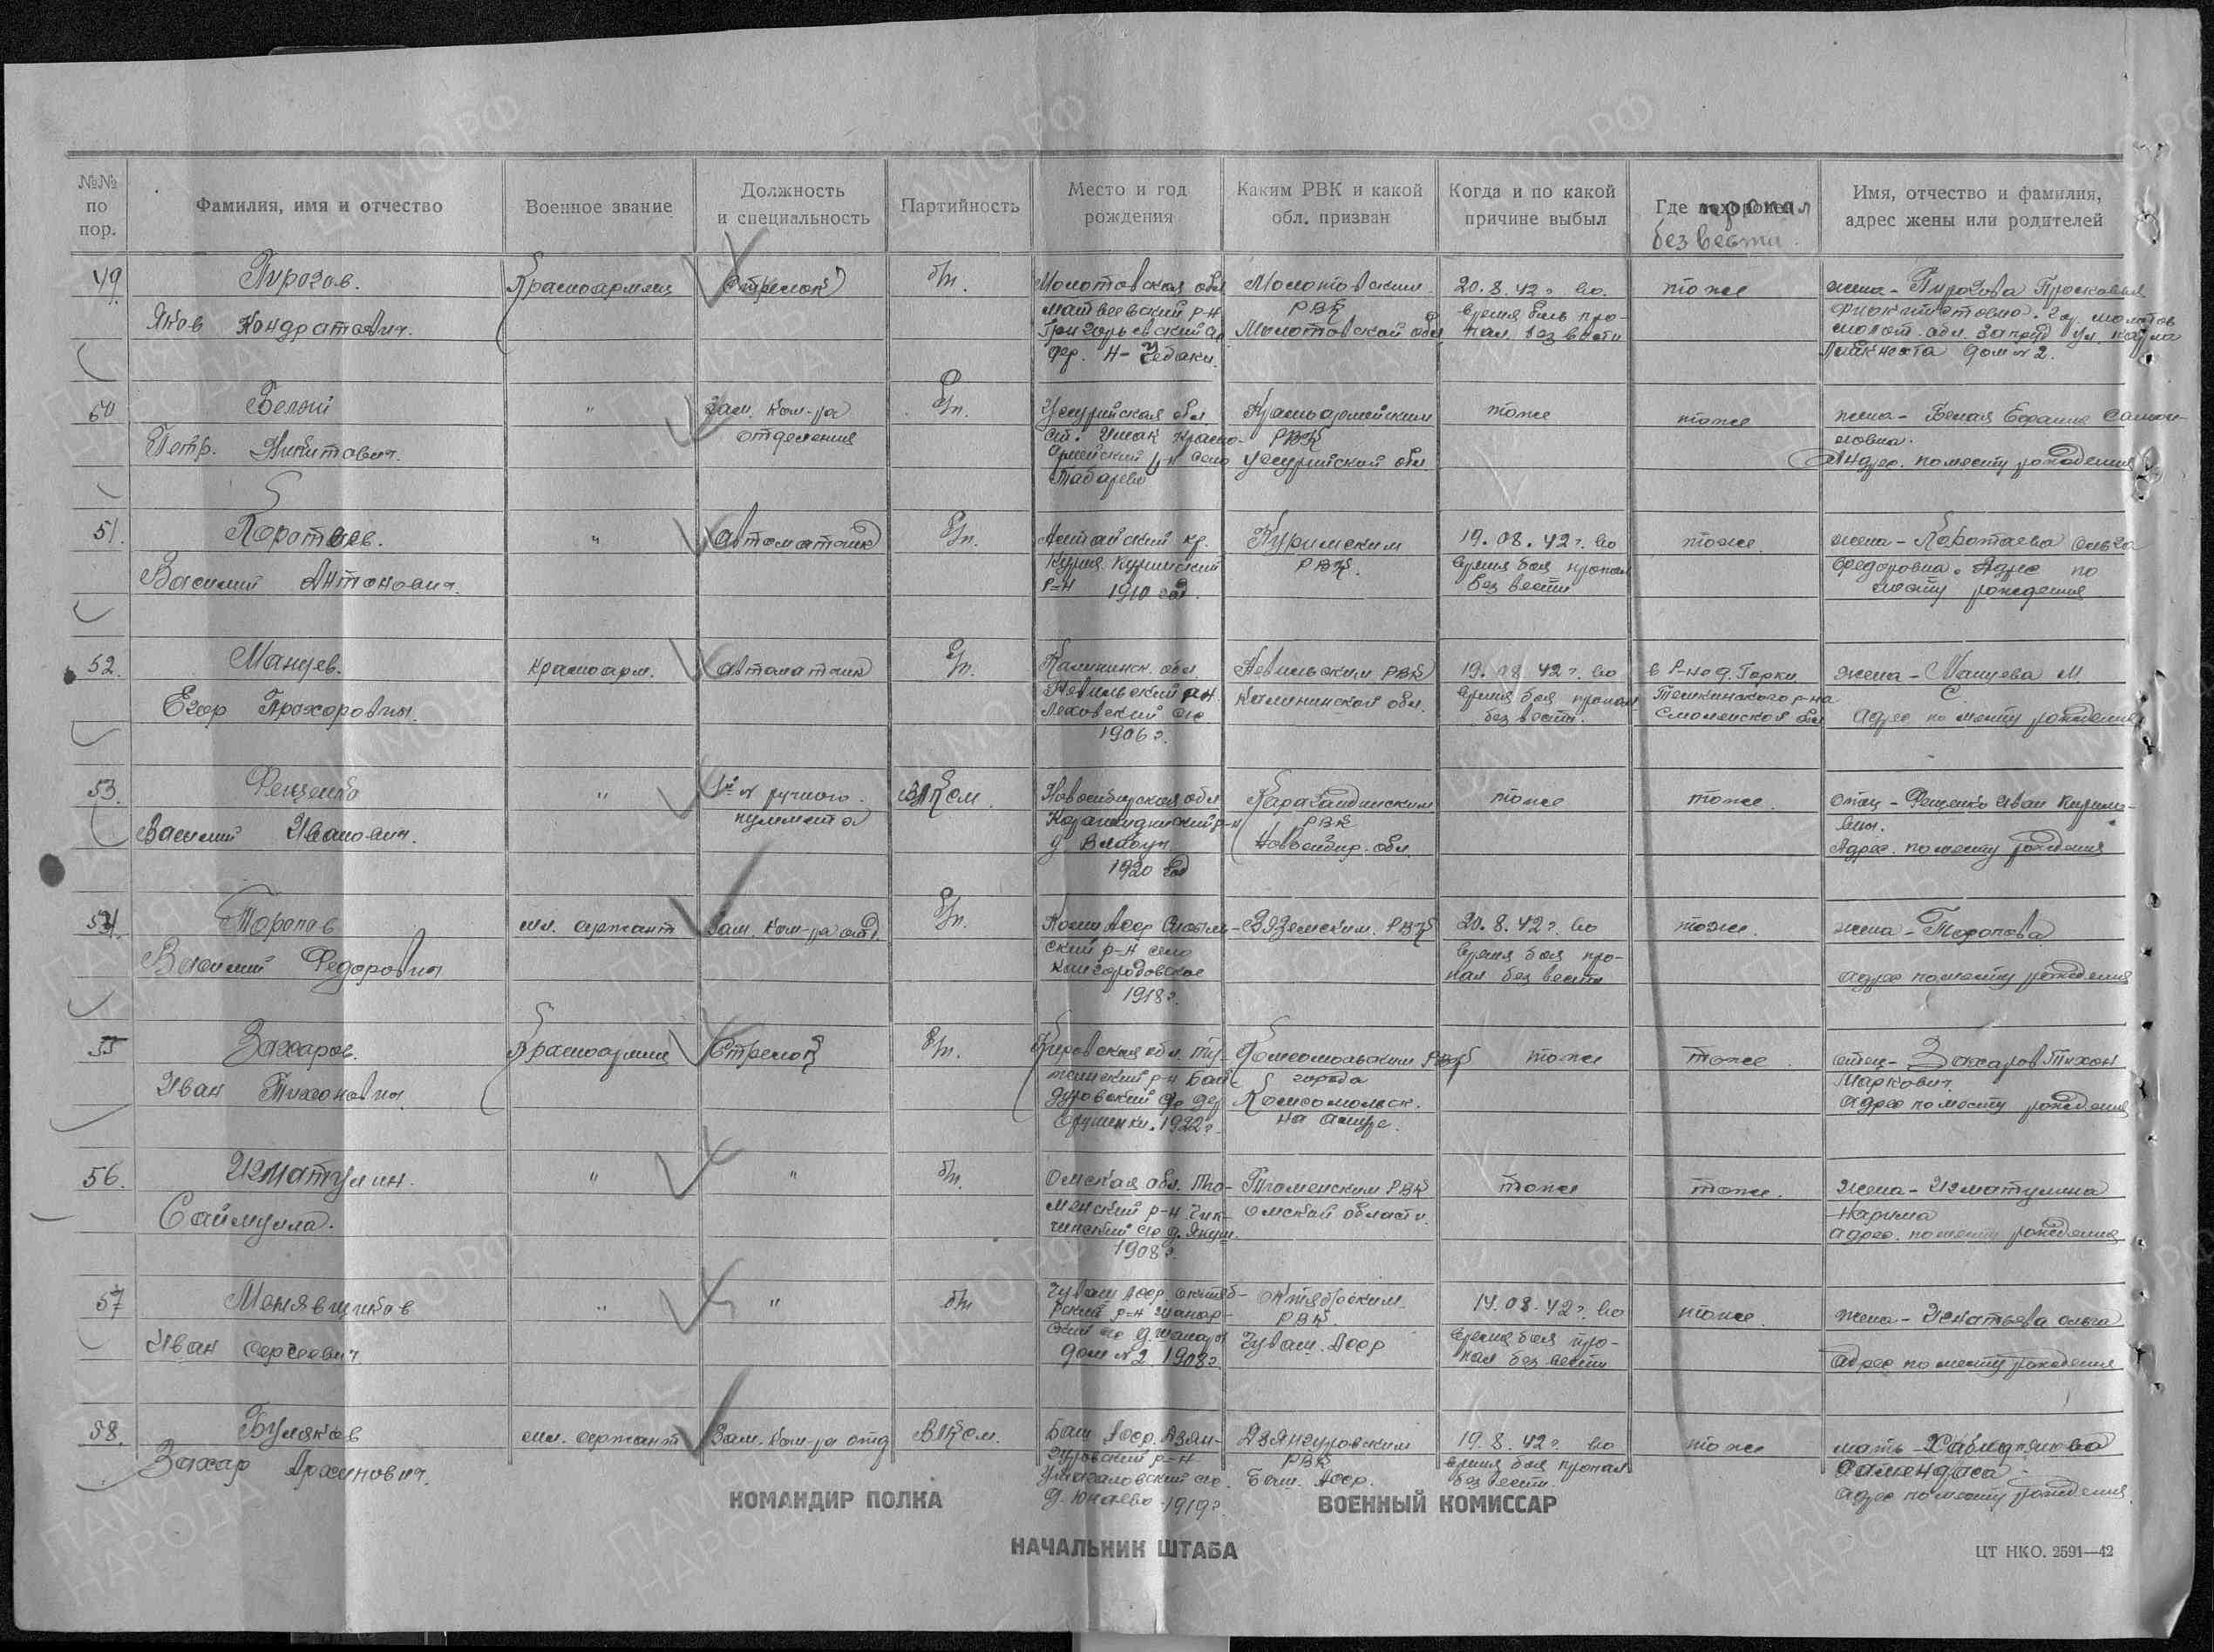 №№ по пор.
Фамилия, имя и отчество
Военное звание
Должность и специальность
Партийность
Место и год рождения
Каким РВК и какой обл. призван
Когда и по какой причине выбыл
Где пропал без вести
Имя, отчество и фамилия, адрес жены или родителей
49. Пирогов. Красноармеец Стрелок б/п. Молотовская обл Молотовским 20.8.42г. во тоже жена - Пирогова Прасковья
Яков Кондратович. РВК время боя про-
Молотовской обл пал без вести
дер. дом №2.
50 Белый " Зам. Ком-ра б/п. Уссурийская обл Красноармейским тоже тоже жена - Белая
Петр. Никитович. отделения РВК
село Уссурийской обл Адрес. по месту рождения
51. Коротаев. " автоматчик б/п. Алтайский кр. Курьинским 19.08.42г. во тоже жена - Коротаева Ольга
Василий Антонович. Курья Курьинский РВК. время боя пропал Федоровна. Адрес по
р-н 1910 год. без вести месту рождения
52. Манцев. красноарм. автоматчик б/п. Калининск. обл Невельским РВК 19.08.42г. во в р-не д. Горки жена - Манцева М
Егор Прохорович. Невельский р-н Калининской обл. время боя пропал Темкинского р-на С.
без вест. Смоленской обл адрес по месту рождения
1906г.
53. Фещенко " 1й № ручного ВЛКСМ. Новосибирская обл Каргатским тоже тоже. отец - Фещенко Иван
Василий Иванович. пулемета РВК
д. Новосибир. обл. Адрес. по месту рождения
1920 год
54. Торопов мл. сержант Зам. Ком-ра отд. б/п. Коми АССР Сысоль- Вяземским. РВК 20.8.42г. во тоже. жена - Торопова
Василий Федорович ский р-н село время боя про-
Койгородовское пал без вести адрес по месту рождения
1918г.
55 Захаров. Красноармеец Стрелок б/п. Кировская обл. Ту- Комсомольским РВК тоже тоже. отец - Захаров Тихон
Иван Тихонович жинский р-н города Маркович.
Комсомольск. адрес по месту рождения
1922г. на Амуре.
56. Изматулин. " " б/п. Омская обл. Тю- Тюменским РВК тоже тоже. жена - Изматулина
Саймулла. менский р-н Чик- Омской области. Нарима
чинский с/с д. Януш. адрес. по месту рождения
1908г.
57 Менявщиков " " б/п Чуваш АССР. октяб- октябрьским. 14.08.42г. во тоже жена - Игнатьева Ольга
Иван Сергеевич рский р-н РВК. время боя про-
дом №2. 1908г. Чуваш. АССР пал без вести адрес по месту рождения
58. Буляков мл. сержант Зам. Ком-ра отд ВЛКСМ. Баш. АССР. Азян- Азянгуровским 19.8.42г. во тоже мать -
Захар гуровский р-н РВК время боя пропал
Баш. АССР. без вести. адрес по месту рождения
д. Юнаево 1919г.
КОМАНДИР ПОЛКА
ВОЕННЫЙ КОМИССАР
НАЧАЛЬНИК ШТАБА
ЦТ НКО. 2591—42